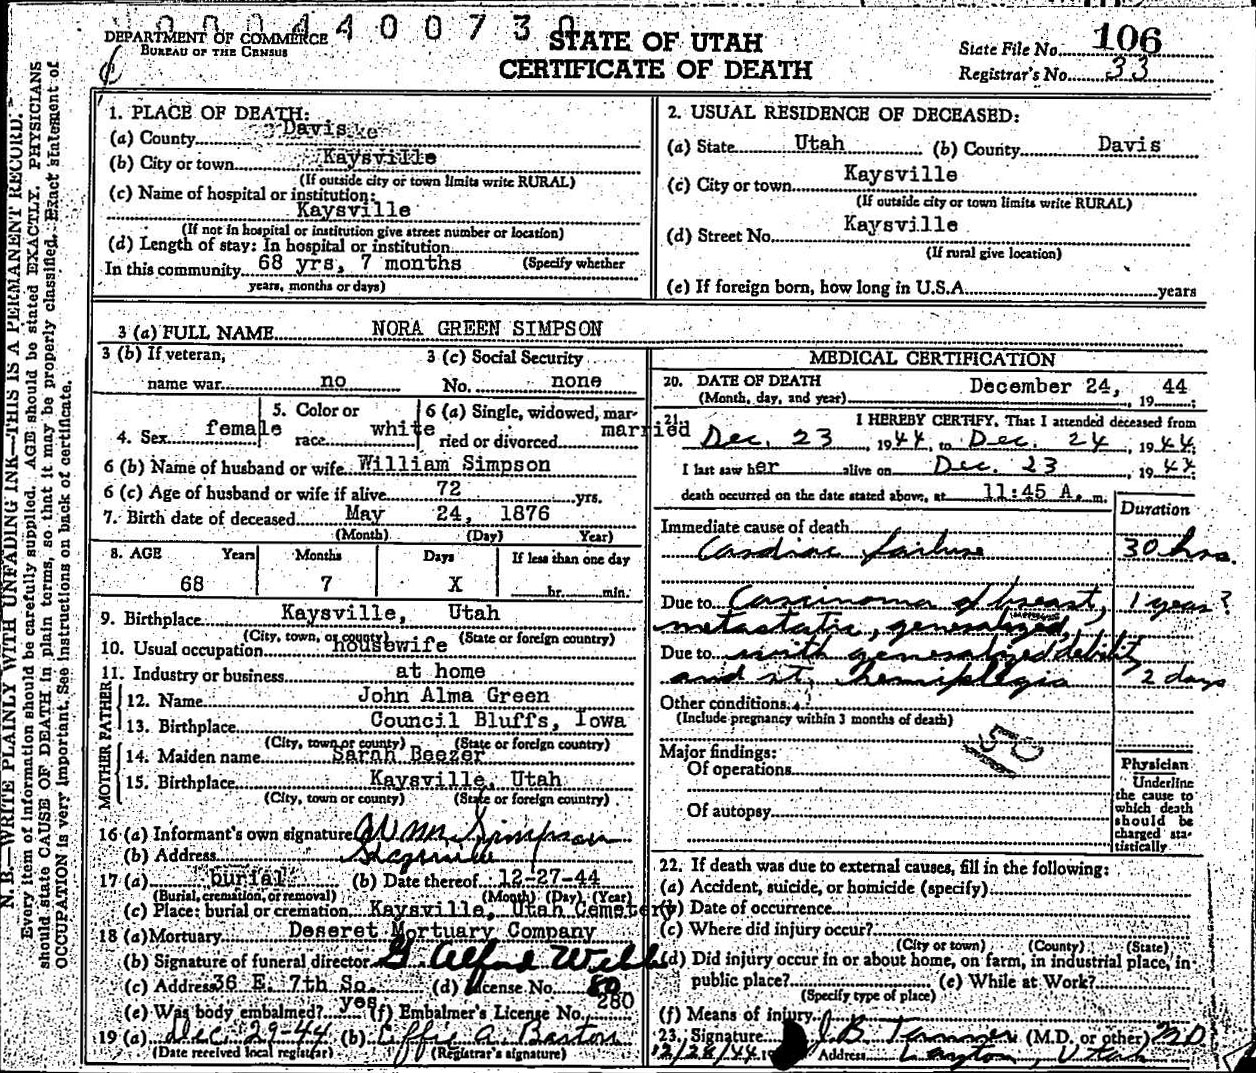 0 0 0 4 4 0 0 7 3 0
DEPARTMENT OF COMMERCE
BUREAU OF THE CENSUS
STATE OF UTAH
CERTIFICATE OF DEATH
State File No. 106
Registrar's No. 33
N. B.—WRITE PLAINLY WITH UNFADING INK—THIS IS A PERMANENT RECORD.
Every item of information should be carefully supplied. AGE should be stated EXACTLY. PHYSICIANS
should state CAUSE OF DEATH in plain terms, so that it may be properly classified. Exact statement of
OCCUPATION is very important. See instructions on back of certificate.
1. PLACE OF DEATH:
(a) County Davis
(b) City or town Kaysville
(If outside city or town limits write RURAL)
(c) Name of hospital or institution:
Kaysville
(If not in hospital or institution give street number or location)
(d) Length of stay: In hospital or institution
In this community 68 yrs, 7 months (Specify whether
years, months or days)
2. USUAL RESIDENCE OF DECEASED:
(a) State Utah (b) County Davis
(c) City or town Kaysville
(If outside city or town limits write RURAL)
(d) Street No. Kaysville
(If rural give location)
(e) If foreign born, how long in U.S.A. years
3 (a) FULL NAME NORA GREEN SIMPSON
3 (b) If veteran,
name war no
3 (c) Social Security
No. none
4. Sex female
5. Color or
race white
6 (a) Single, widowed, mar-
ried or divorced married
6 (b) Name of husband or wife William Simpson
6 (c) Age of husband or wife if alive 72 yrs.
7. Birth date of deceased May 24, 1876
(Month) (Day) Year)
8. AGE Years Months Days If less than one day
68 7 X hr. min.
9. Birthplace Kaysville, Utah
(City, town, or county) (State or foreign country)
10. Usual occupation housewife
11. Industry or business at home
FATHER
12. Name John Alma Green
13. Birthplace Council Bluffs, Iowa
(City, town or county) (State or foreign country)
MOTHER
14. Maiden name Sarah Beezer
15. Birthplace Kaysville, Utah
(City, town or county) (State or foreign country)
16 (a) Informant's own signature Wm. Simpson
(b) Address
17 (a) burial (b) Date thereof 12-27-44
(Burial, cremation, or removal) (Month) (Day) (Year)
(c) Place: burial or cremation Kaysville, Utah Cemetery
18 (a) Mortuary Deseret Mortuary Company
(b) Signature of funeral director G. Alfred Webb
(c) Address 36 E. 7th So. (d) License No. 80
(e) Was body embalmed? yes (f) Embalmer's License No. 280
19 (a) Dec. 29-44 (b) Effie A. Barton
(Date received local registrar) (Registrar's signature)
MEDICAL CERTIFICATION
20. DATE OF DEATH
(Month, day, and year) December 24, 19 44
21. I HEREBY CERTIFY, That I attended deceased from
Dec. 23 1944, to Dec. 24 1944
I last saw her alive on Dec. 23 1944
death occurred on the date stated above, at 11:45 A. m.
Duration
Immediate cause of death
Cardiac failure 30 hrs.
Due to Carcinoma of breast, 1 year?
metastatic, generalized,
Due to with generalized debility
and rt. hemiplegia 2 days
Other conditions
(Include pregnancy within 3 months of death)
50
Major findings:
Of operations
Of autopsy
Physician
Underline
the cause to
which death
should be
charged sta-
tistically
22. If death was due to external causes, fill in the following:
(a) Accident, suicide, or homicide (specify)
(b) Date of occurrence
(c) Where did injury occur?
(City or town) (County) (State)
(d) Did injury occur in or about home, on farm, in industrial place, in
public place? (e) While at Work?
(Specify type of place)
(f) Means of injury
23. Signature J. B. Tanner (M.D. or other) MD
12/28/44 Address Layton, Utah